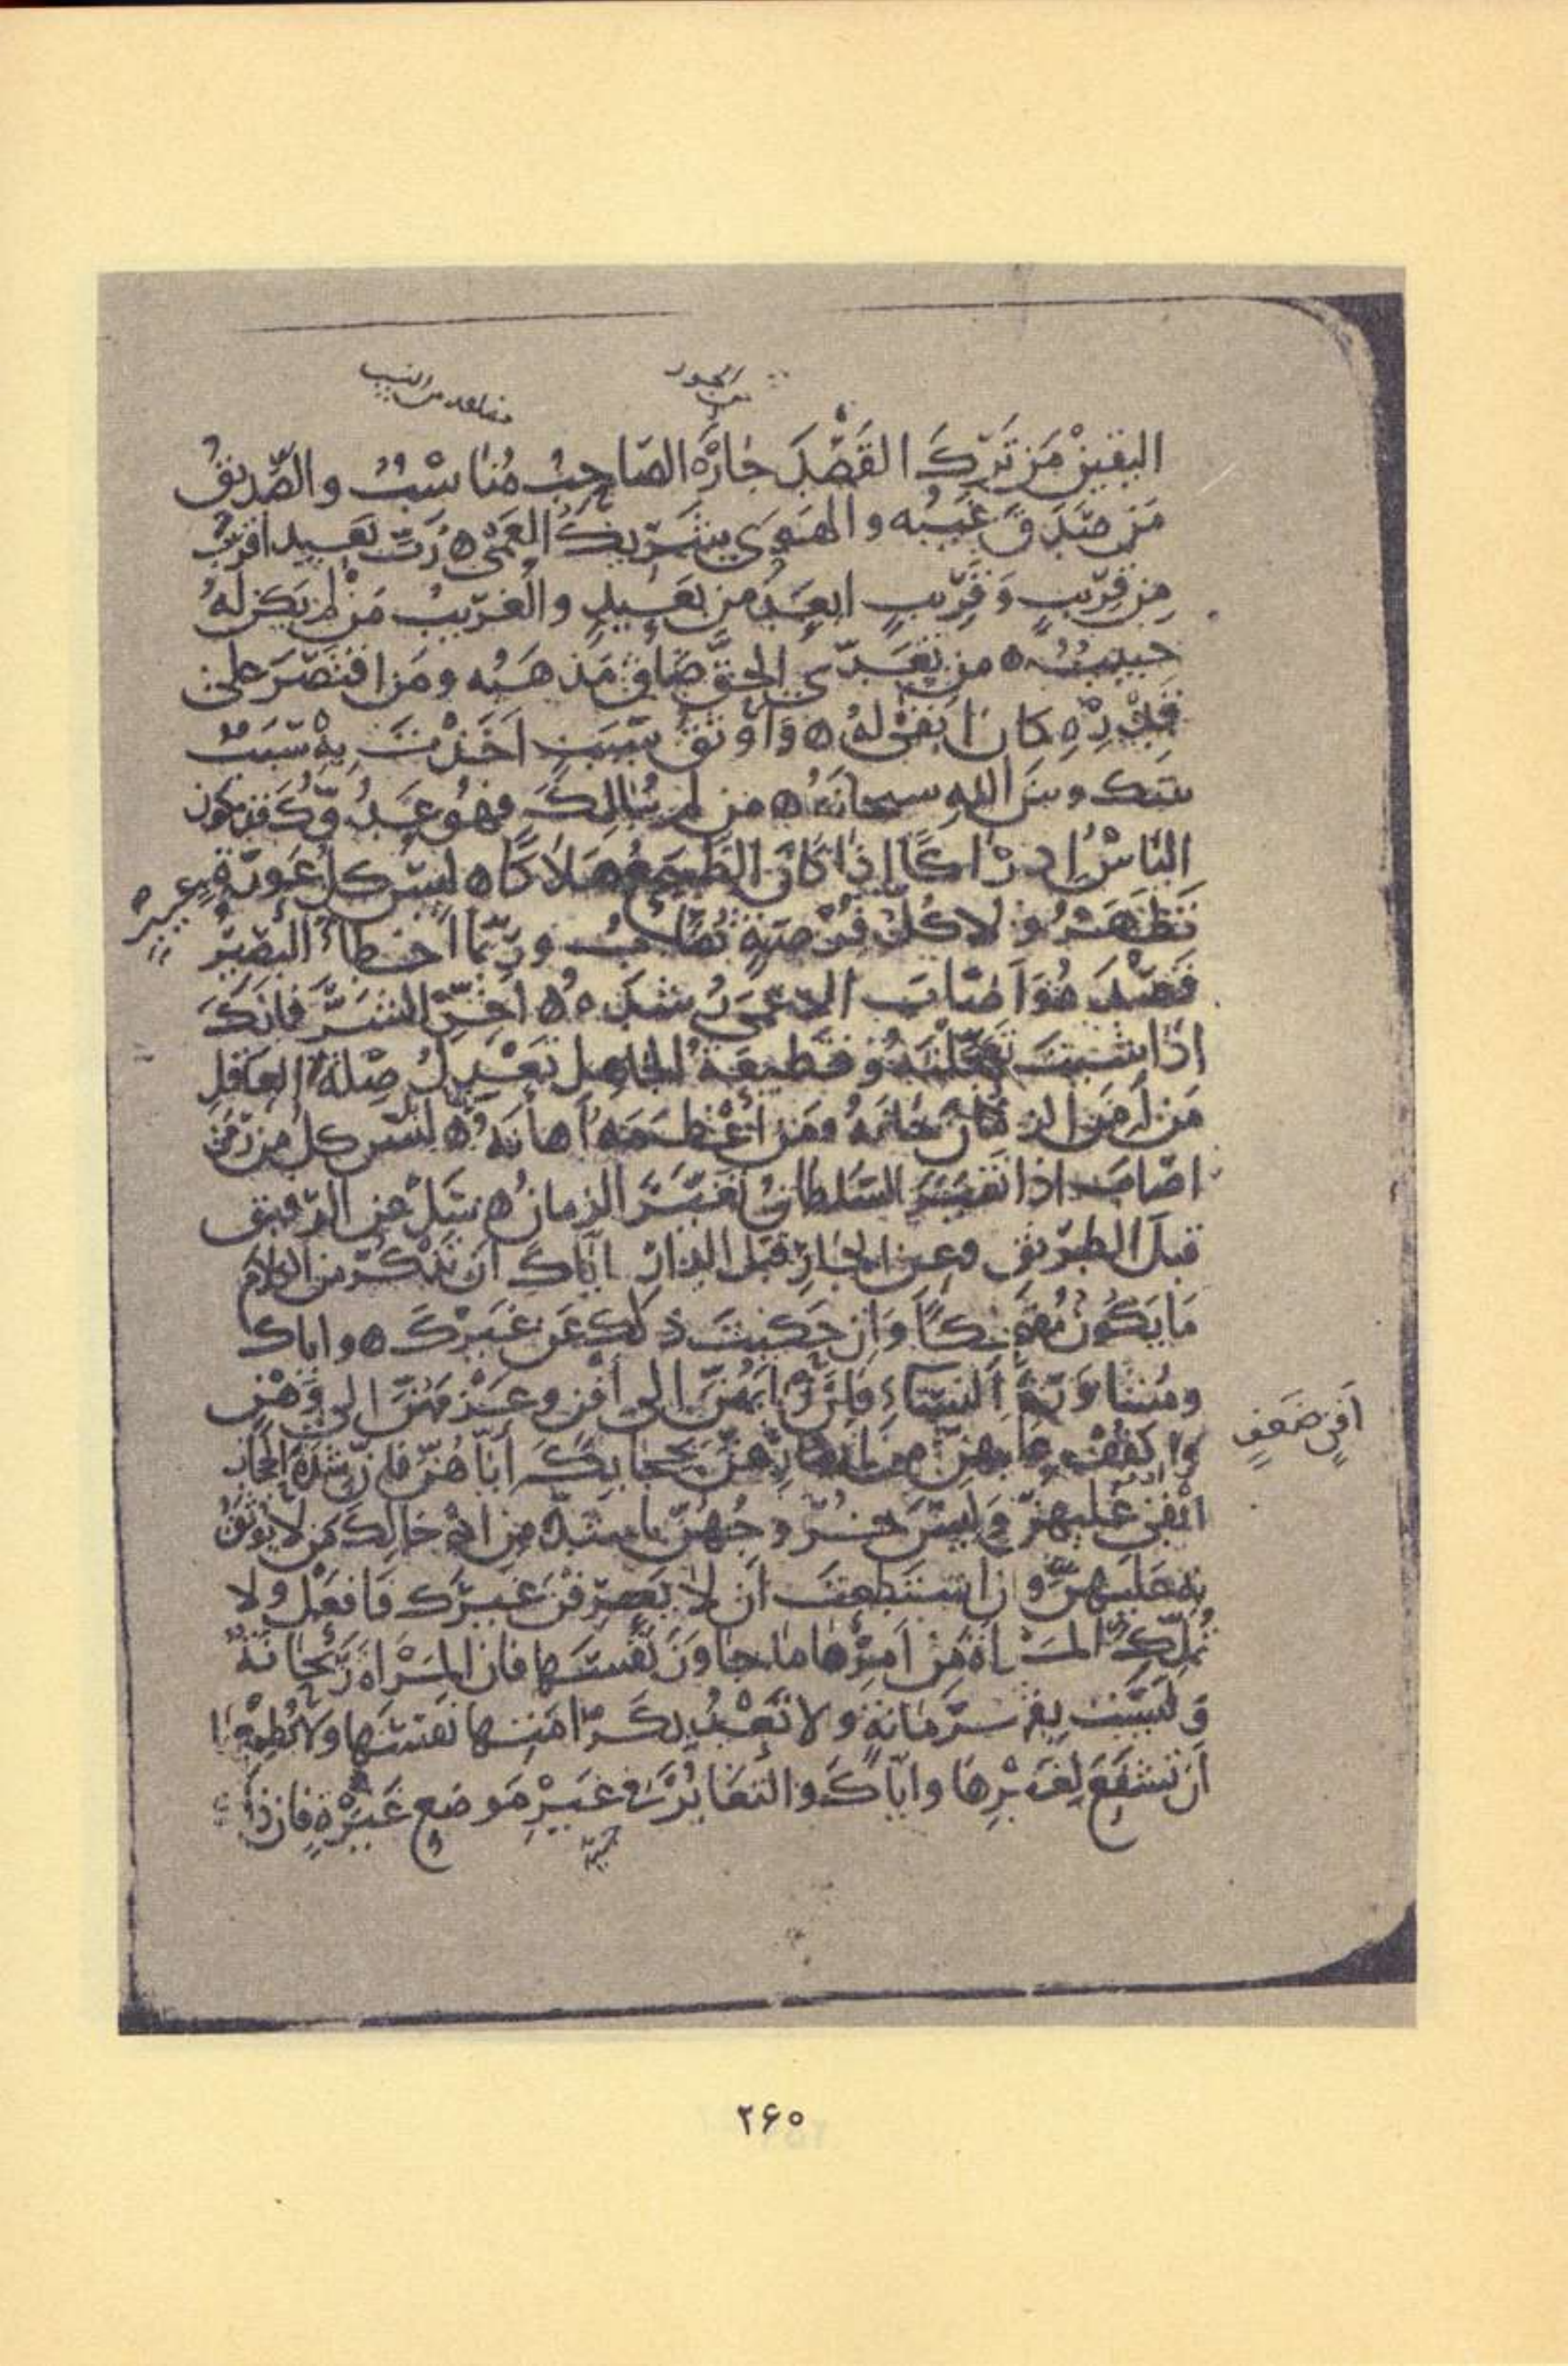 من الجور
مناسب من النسب
اليقين مَن تَرَكَ القَصْدَ جَارَ الصّاحِبُ مُنَاسِبٌ والصَّدِيقُ
مَن صَدَقَ غَيبُه والهَوَى شَرِيكُ العَمَى رُبَّ بَعِيدٍ اقرَبُ
مِن قَرِيبٍ وَقَرِيبٍ ابعَدُ مِن بَعِيدٍ والغَرِيبُ مَن لم يَكُن لَهُ
حَبِيبٌ من تَعَدَّى الحَقَّ ضَاقَ مَذهَبُه ومَن اقتَصَرَ على
قَدْرِهِ كان ابقى لَهُ وَاَوثَقُ سَبَبٍ اَخَذْتَ بِهِ سَبَبٌ
بينك وبينَ اللهِ سبحانَهُ من لم يُبَالِكَ فهو عَدُوُّكَ قد يكون
النّاسُ اِدرَاكًا اِذَا كَانَ الطَّمَعُ هَلاَكًا ليس كل عَورَةٍ
تَظهَرُ ولا كُلُّ فُرصَةٍ تُصَابُ وربَّما اَخطَأَ البَصِيرُ
قَصْدَهُ وَاَصَابَ الاعمَى رُشدَهُ اَخِّرِ الشَّرَّ فاِنَّكَ
اِذَا شِئتَ تَعَجَّلْتَهُ وقَطِيعَةُ الجَاهِلِ تَعْدِلُ صِلَةَ العَاقِلِ
مَن اَمِنَ الزمَانَ خَانَهُ ومَن اَعْظَمَهُ اَهَانَهُ ليس كل من رَمَى
اصَابَ اذا تَغَيَّرَ السُّلطَانُ تَغَيَّرَ الزمانُ سَلْ عن الرَّفِيقِ
قبلَ الطرِيقِ وعن الجَارِ قبل الدارِ ايّاكَ اَن تَذْكُرَ من الكلام
مَا يَكُونُ مُضحِكًا وَاِن حَكَيتَ ذَلك عَن غَيرِكَ واياك
ومُشَاوَرَةَ النِّسَاءِ فاِنَّ رَايَهُنَّ الى اَفْنٍ وعَزْمَهُنَّ الى وَهْنٍ
اَفنٍ ضَعفٍ
واكفُفْ عليهِنَّ من ابصَارِهِنَّ بحِجَابِكَ اِيَّاهُنَّ فان شدة الحجاب
ابقى عليهنّ وَليسَ خُرُوجُهُنَّ باشَدَّ من اِدخَالِكَ مَن لا يُوثَقُ
به عليهنَّ واِن استَطعتَ اَن لا يَعرِفْنَ غَيرَك فَافعَلْ ولا
تُمَلِّكِ المَرأةَ مِن اَمرِهَا ما جاوَزَ نَفسَهَا فان المَراةَ رَيحَانَةٌ
وَلَيسَت بِقَهرَمَانَةٍ ولا تَعْدُ بِكَرَامَتِهَا نَفسَهَا ولا تُطمِعْهَا
اَن تَشفَعَ لِغَيرِهَا وايّاكَ والتَغَايُرَ في غَيرِ مَوضِعِ غَيرَةٍ فان ذلك
۲۶۰